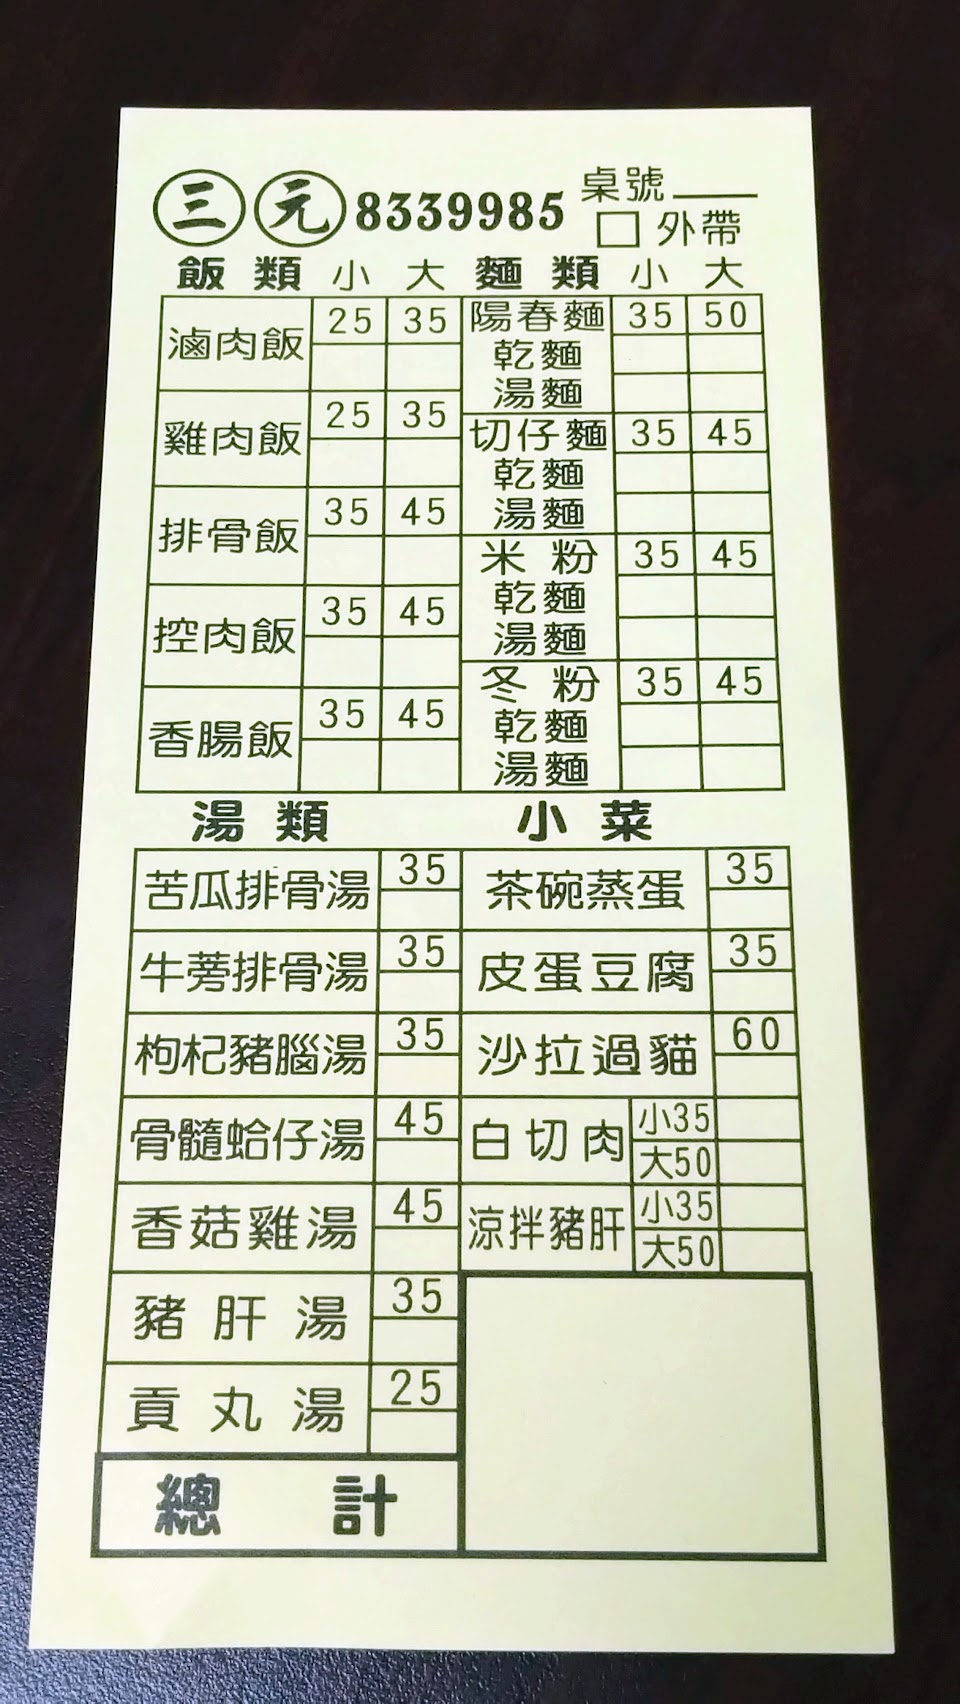 三元 8339985 桌號
□ 外帶
飯類 小 大
滷肉飯 25 35
雞肉飯 25 35
排骨飯 35 45
控肉飯 35 45
香腸飯 35 45
麵類 小 大
陽春麵 35 50
乾麵
湯麵
切仔麵 35 45
乾麵
湯麵
米粉 35 45
乾麵
湯麵
冬粉 35 45
乾麵
湯麵
湯類
苦瓜排骨湯 35
牛蒡排骨湯 35
枸杞豬腦湯 35
骨髓蛤仔湯 45
香菇雞湯 45
豬肝湯 35
貢丸湯 25
小菜
茶碗蒸蛋 35
皮蛋豆腐 35
沙拉過貓 60
白切肉 小35
大50
涼拌豬肝 小35
大50
總計